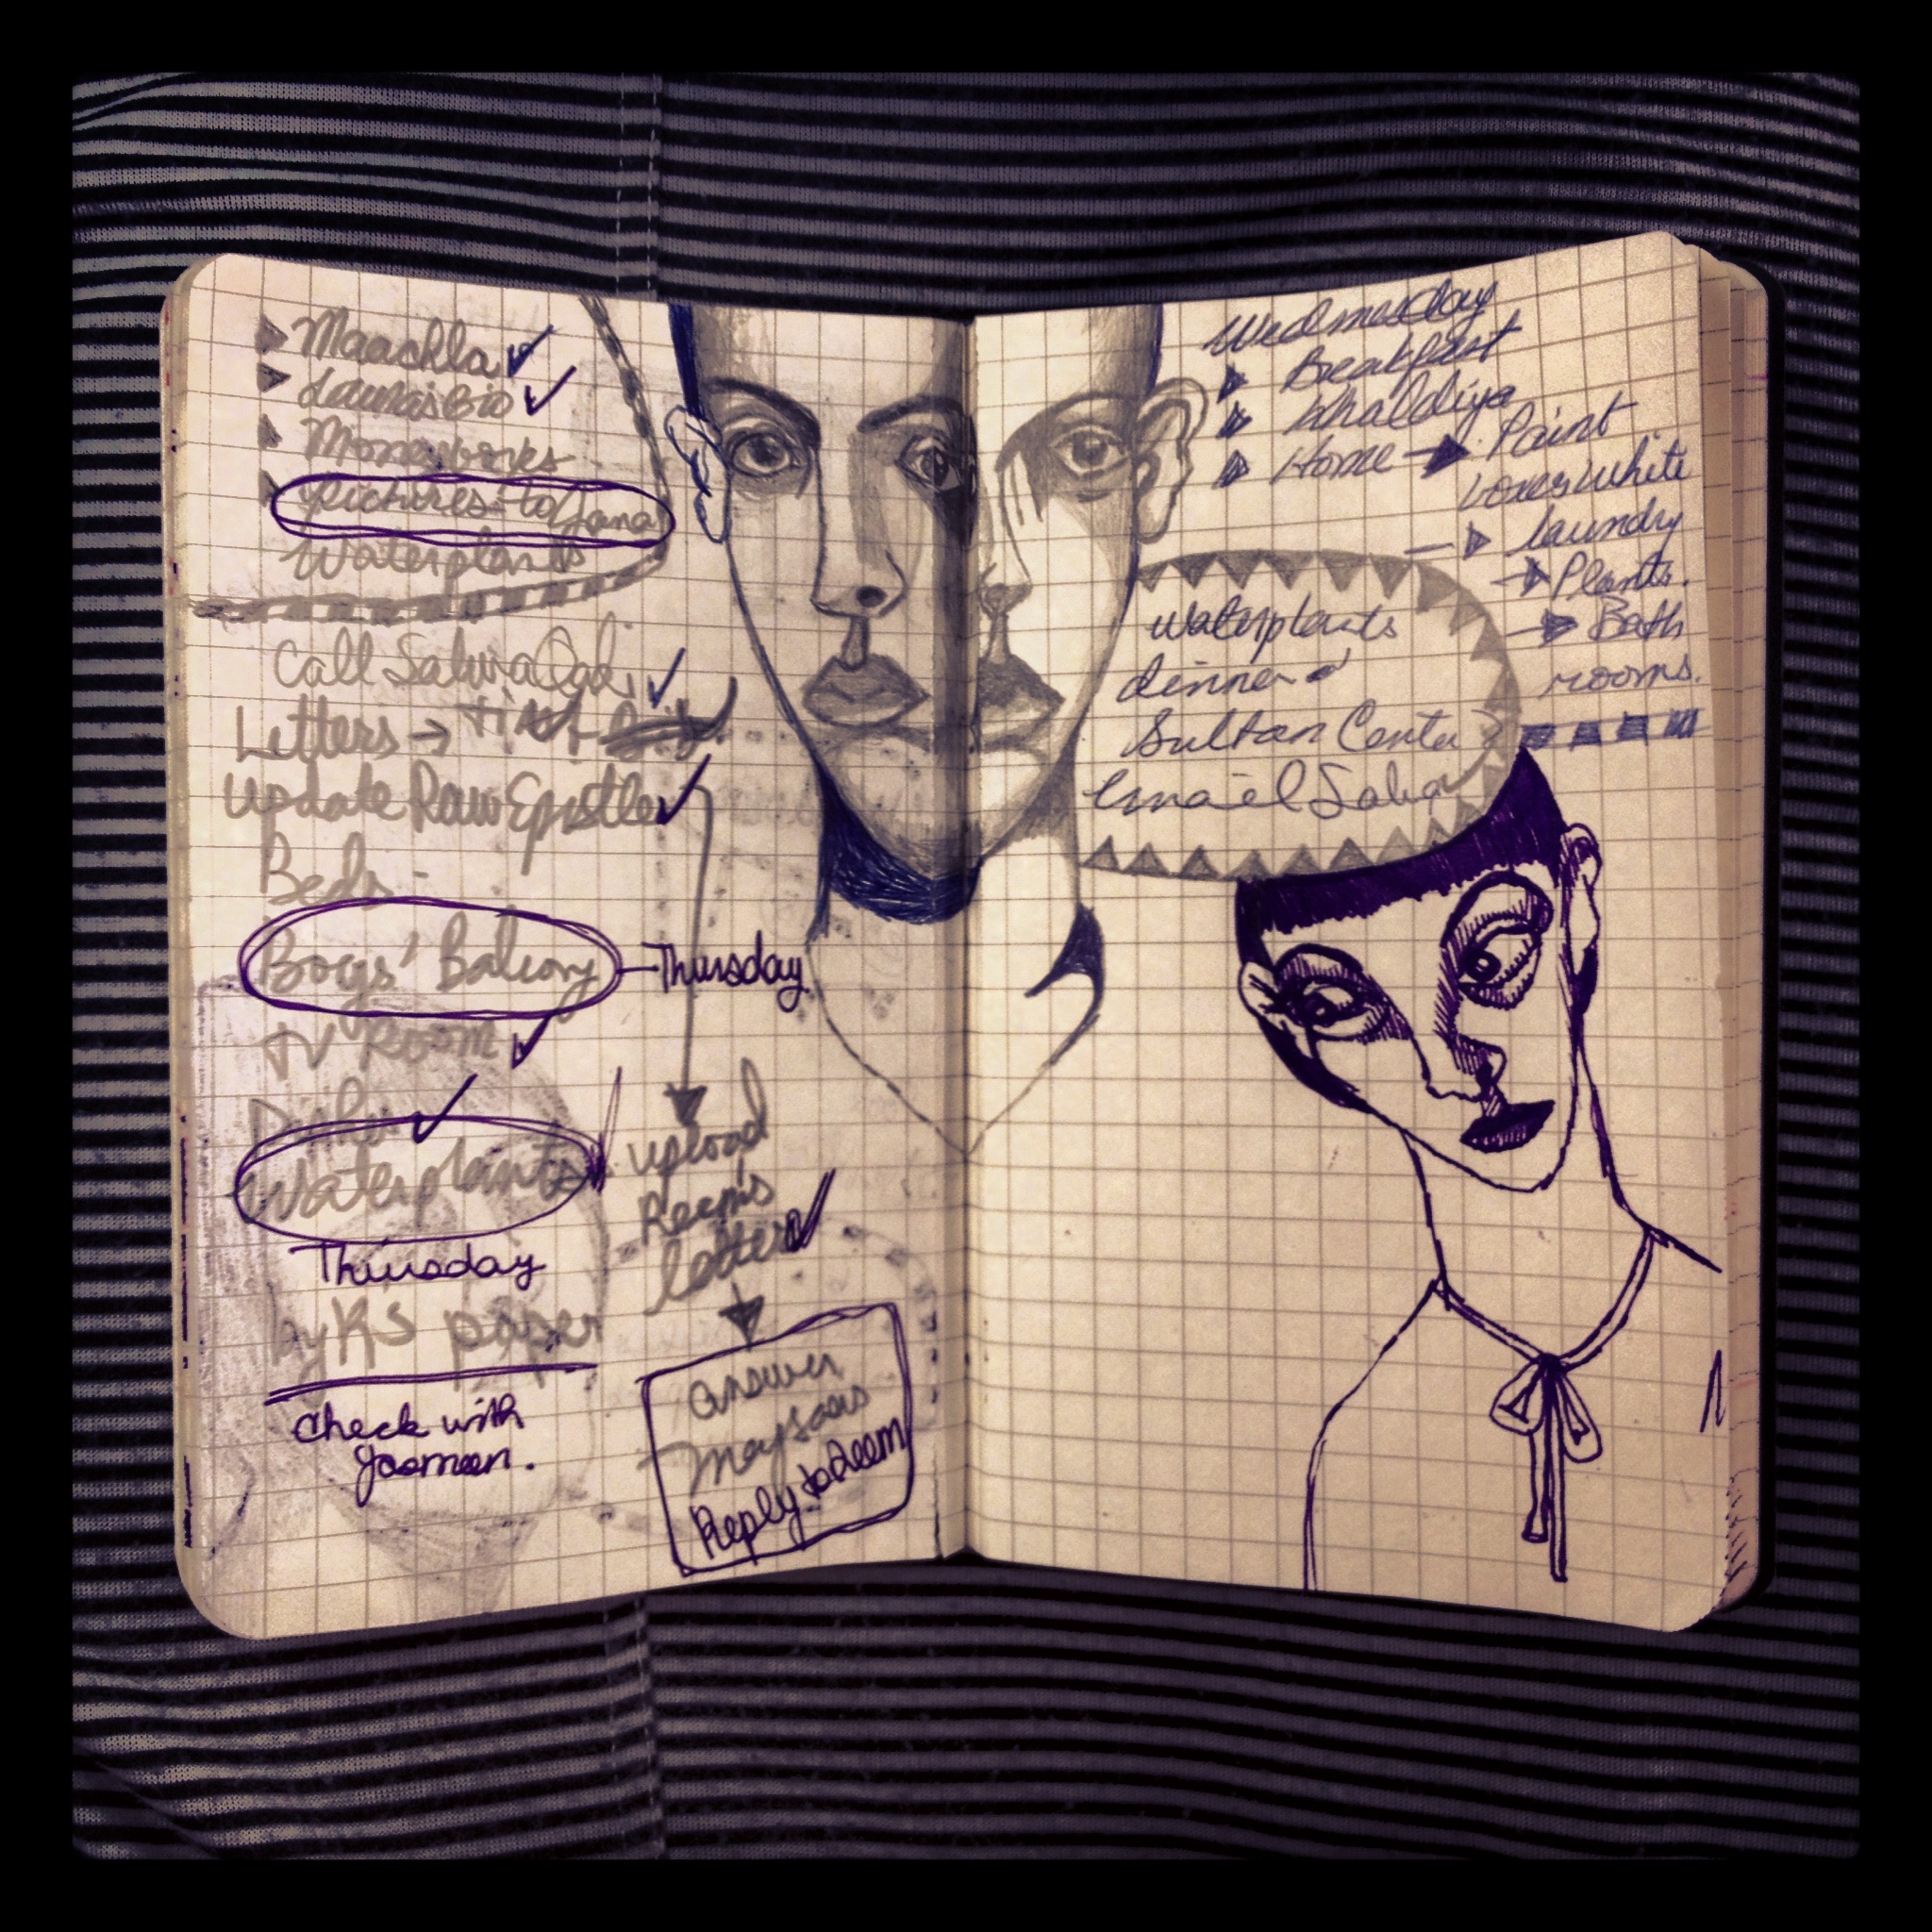 Maachla
Laura's Bio
Moneyworks
pictures to Jana
Waterplants
Call
Letters →
Update Raw Epistle
Beds -
Boys' Balcony - Thursday
TV Room
Waterplants
Thursday
KS paper
Check with
Jasmeen.
upload
Reem's
letter
answer
Maysaa's
Reply to Reem
Wednesday
Breakfast
Khaldiya
Home → Paint
boxes white
→ laundry
→ Plants.
→ Bath
rooms.
waterplants
dinner
Sultan Center?